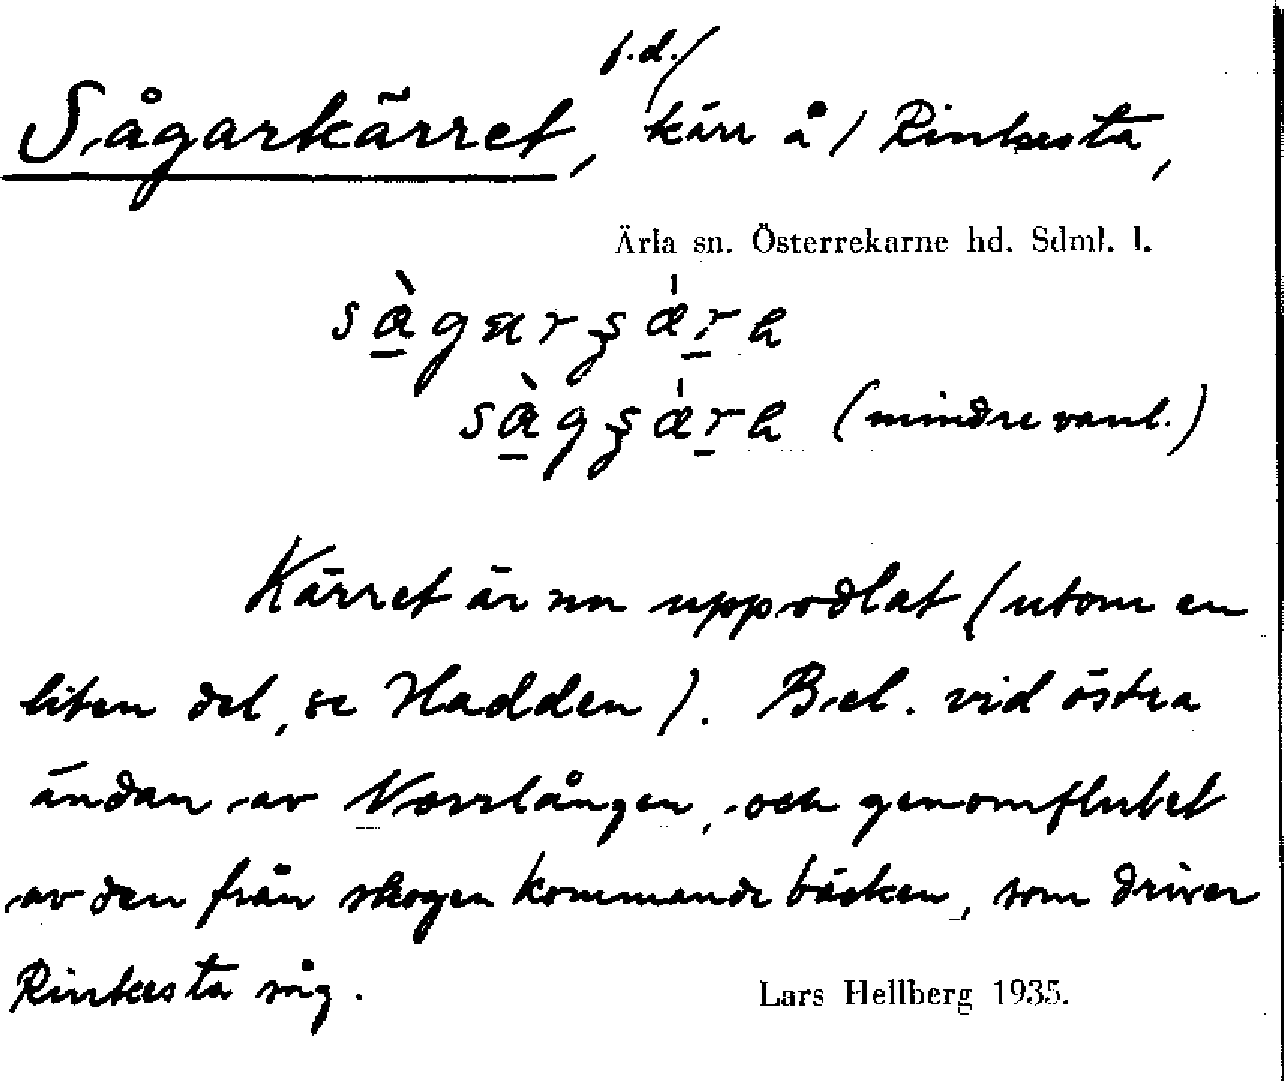 Sågarkärret, f.d./ kärr å / Rinkesta,
Ärla sn. Österrekarne hd. Sdml. l.
(mindre vanl.)
Kärret är nu uppodlat (utom en
liten del, se Hadden). Bel. vid östra
ändan av Norrlången, och genomflutet
av den från skogen kommande bäcken, som driver
Rinkesta såg.
Lars Hellberg 1935.